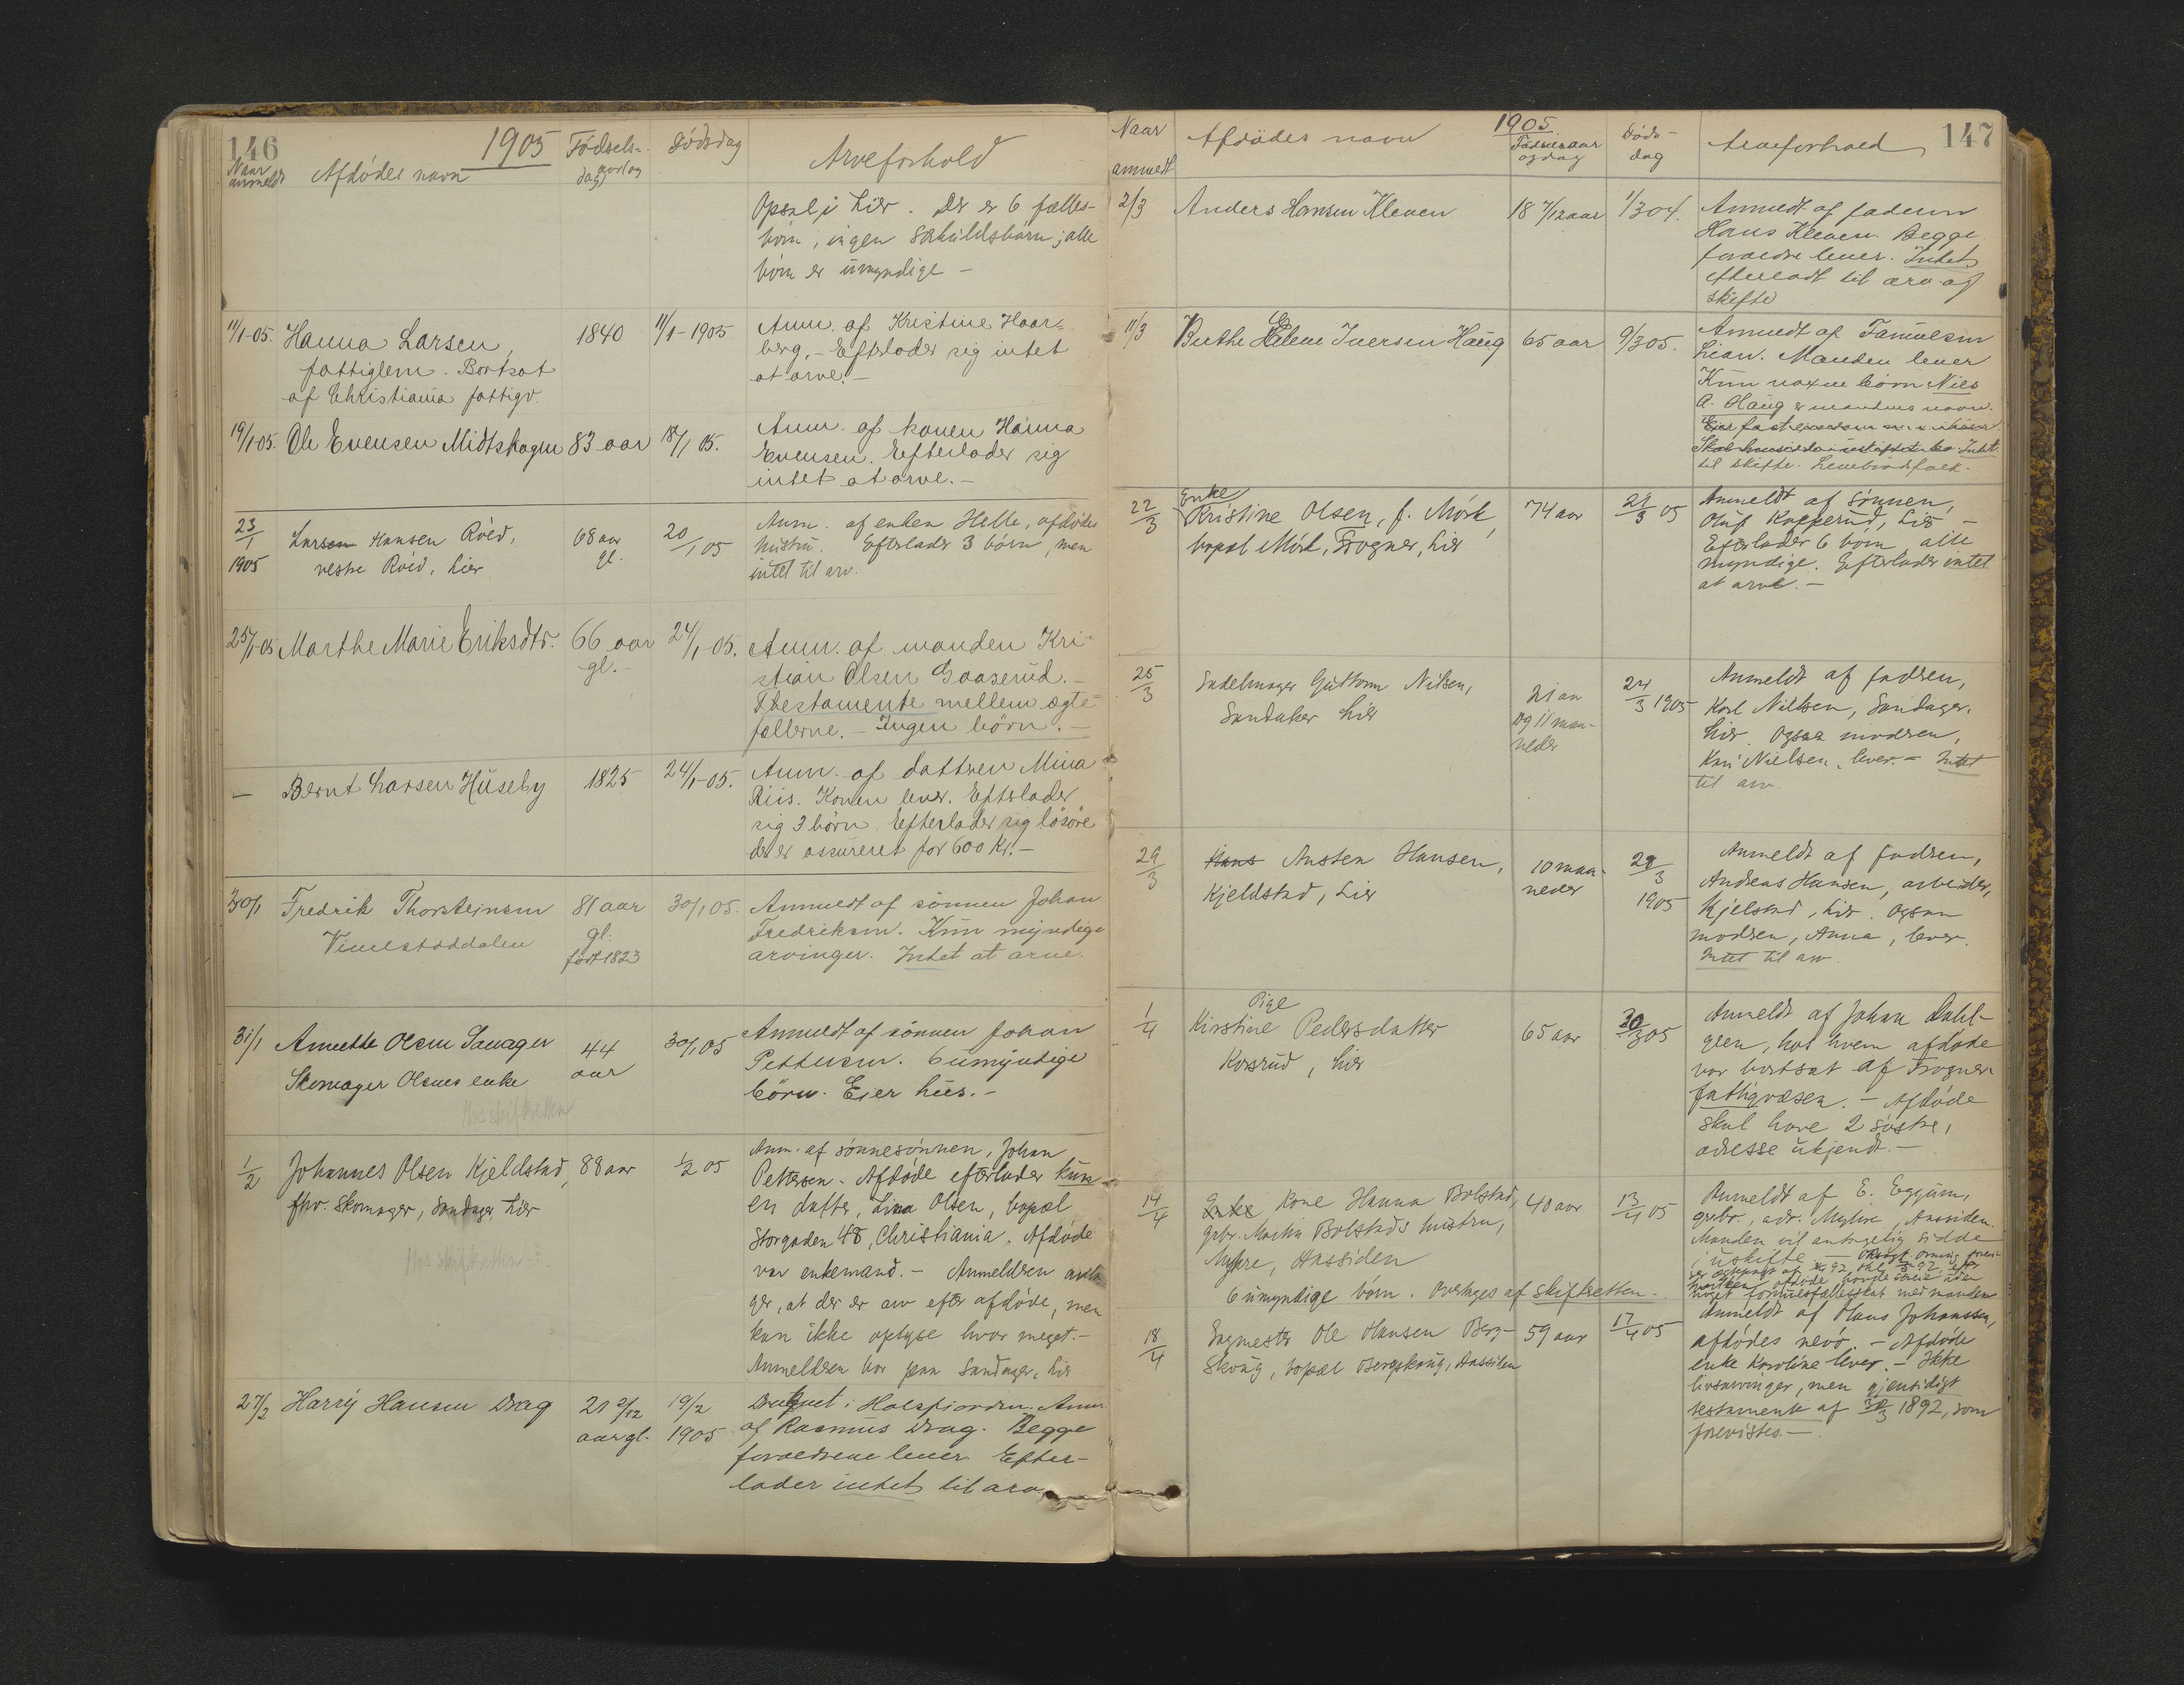 146
1905
Naar anmeldt
Afdödes navn
Fødsels-
dag og aar
Dødsdag
Arveforhold
Opsal i Lier. Der er 6 fælles-
börn, ingen særkuldsbörn; alle
börn er umyndige -
11/1-05.
Hanna Larsen,
fattiglem. Bortsat
af Christiania fattigv.
1840
11/1-1905
Anm. af Kristine Haar-
berg. - Efterlader sig intet
at arve. -
19/1-05.
Ole Evensen Midtskogen
83 aar
18/1 05.
Anm. af konen Hanna
Evensen. Efterlader sig
intet at arve. -
23/1
1905
Larsen Hansen Röed,
vestre Röed, Lier
68 aar
gl.
20/1 05
Anm. af enken Helle, afdödes
hustru. Efterlader 3 börn, men
intet til arv.
25/1-05
Marthe Marie Eriksdtr.
66 aar
gl. -
24/1 05.
Anm. af manden Kri-
stian Olsen Gaaserud. -
Thestamente mellem ægte-
fællerne. - Ingen börn. -
-
Bernt Larsen Huseby
1825
24/1-05.
Anm. af dattren Mina
Riis. Konen lever. Efterlader
sig 3 börn. Efterlader sig lösöre
der er assureret for 600 Kr. -
30/1
Fredrik Thorsteinsen
81 aar
gl.
født 1823
30/1 05.
Anmeldt af sönnen Johan
Fredriksen. Kun myndige
arvinger. Intet at arve.
31/1
Annethe Olsen
Skomager Olsens enke
44
aar
30/1 05
Anmeldt af sönnen Johan
Pettersen. 6 umyndige
börn. Eier hus. -
1/2
Johannes Olsen Kjeldstad,
fhv. skomager, Sandager, Lier
88 aar
1/2 05
Anm. af sönnesönnen, Johan
Pettersen. Afdöde efterlader kun
en datter, Lina Olsen, bopæl
Storgaden 48, Christiania. Afdöde
var enkemand. - Anmelderen anta-
ger, at der er arv efter afdöde, men
kan ikke oplyse hvor meget. -
Anmelderen bor paa Sandager, Lier
27/2
Harry Hansen Drag
21 2/12
aar gl.
19/2
1905
Druknet i Holsfjorden. Anm
af Rasmus Drag. Begge
forældrene lever. Efter-
lader intet til arv
147
1905
Naar
anmeldt
Afdödes navn
Födselsaar
og dag
Döds-
dag
Arveforhold
2/3
Anders Hansen Kleven
18 7/12 aar
1/3 04.
Anmeldt af faderen
Hans Kleven. Begge
forældre lever. Intet
efterladt til arv og
skifte
11/3
Berthe Elene Iversen Haug
65 aar
9/3 05.
Anmeldt af
Lian. Manden lever
Kun voxne börn. Nils
A. Haug er mandens navn.
Intet
til skifte. Levebrödsfolk.
22/3
Enke
Kristine Olsen, f. Mörk,
bopæl Mörk, Frogner, Lier
74 aar
21/3 05
Anmeldt af sönnen,
Oluf Kopperud, Lier -
Efterlader 6 börn, alle
myndige. Efterlader intet
at arve. -
25/3
Sadelmager Guttorm Nilsen,
Sandaker Lier
21 aar
og 11 maa-
neder
24/3 1905
Anmeldt af fadren,
Karl Nielsen, Sandager,
Lier. Ogsaa modren,
Kari Nielsen, lever. - Intet
til arv.
29/3
Hans Austen Hansen,
Kjeldstad, Lier
10 maa-
neder
29/3
1905
Anmeldt af fadren,
Andreas Hansen, arbeider,
Kjelstad, Lier. Ogsaa
modren, Anna, lever.
Intet til arv.
1/4
Pige
Kirstine Pedersdatter
Korsrud, Lier
65 aar
30/3 05
Anmeldt af Johan Dahl-
gren, hos hvem afdöde
var bortsat af Frogner
fattigvæsen. - Afdöde
skal have 2 söstre,
adresse ukjendt. -
14/4
Enke Kone Hanna Bolstad,
grbr. Martin Bolstads hustru,
Myhre, Aassiden
6 umyndige börn. Overtages af skifteretten. -
40 aar
13/4 05
Anmeldt af E. Eggum,
grbr., adr. Myhre, Aassiden.
Manden vil antagelig sidde
i uskifte -
noget formuesfællesskab med manden
18/4
Sagmester Ole Hansen Berg-
skaug, bopæl Bergskaug, Aassiden
59 aar
17/4 05
Anmeldt af Hans Johanssen,
afdödes nevö. - Afdöde
enke Karoline lever. - Ikke
livsarvinger, men gjensidigt
testamente af 30/3 1892, som
forevistes. -